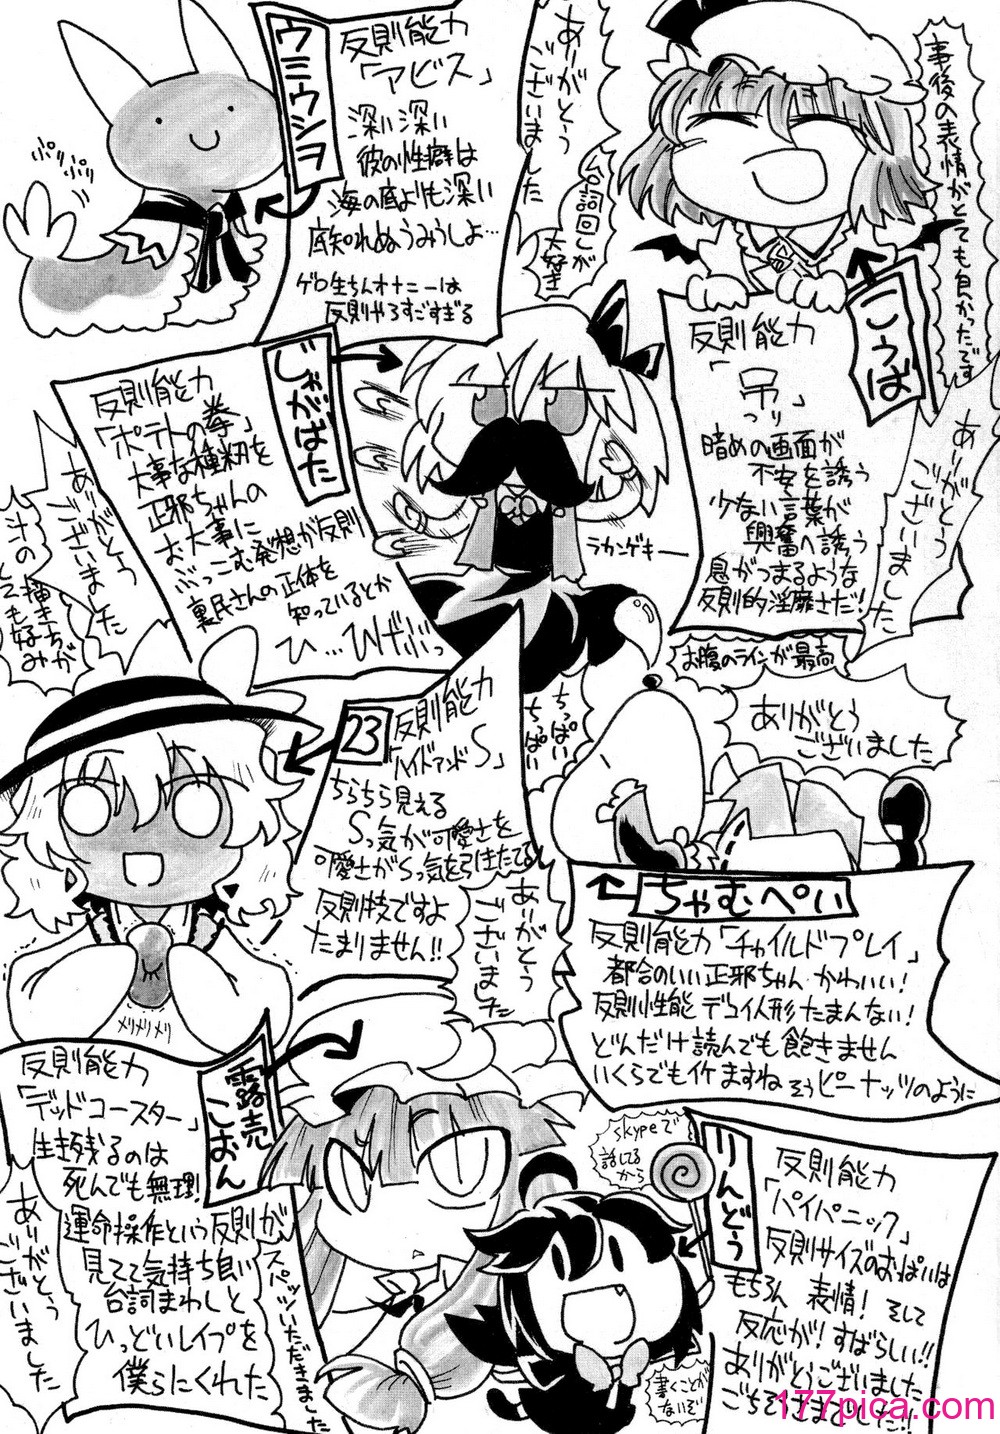 事後の表情がとても良かったです
ありがとう
ございました
台詞回しが
大好き
こうば
反則能力
「吊つり」
暗めの画面が
不安を誘う
少ない言葉が
興奮へ誘う
息がつまるような
反則的淫靡さだ!
ウミウシヲ
反則能力
「アビス」
深い深い
彼の性癖は
海の底よりも深い
底知れぬうみうしよ…
ゲロ生ちんオナニーは
反則やろすごすぎる
ぷりぷり
じゃがばた
反則能力
「ポテトの拳」
大事な種籾を
正邪ちゃんの
お大事に
ぶっこむ発想が反則
裏民さんの正体を
知っているとか
ひ…ひげぶっ
ラカンゲキー
ありがとう
ございました
汁の描き方が
とても好み
ありがとう
ございました
お腹のラインが最高
ありがとう
ございました
ちっぱい
ちっぱい
23
反則能力
「ハイドアンドS」
ちらちら見える
Sっ気が可愛さを
可愛さがSっ気を引きたてる
反則技ですよ
たまりません!!
ありがとう
ございました
メリメリメリ
ちゃむぺい
反則能力「チャイルドプレイ」
都合のいい正邪ちゃんかわいい!
反則性能デコイ人形たまんない!
どんだけ読んでも飽きません
いくらでもイケますね そうピーナッツのように
露売こおん
反則能力
「デッドコースター」
生き残るのは
死んでも無理!
運命操作という反則が
見てて気持ち良い
台詞まわしと
ひっどいレイプを
僕らにくれた
ありがとう
ございました
スパッツいただきました
りんどう
skypeで
話してる
から
書くことが
ないぞ
反則能力
「パイパニック」
反則サイズのおっぱいは
もちろん 表情! そして
反応が! すばらしい!!
ありがとうございました
ごちそうさまでした!!
177pica.com